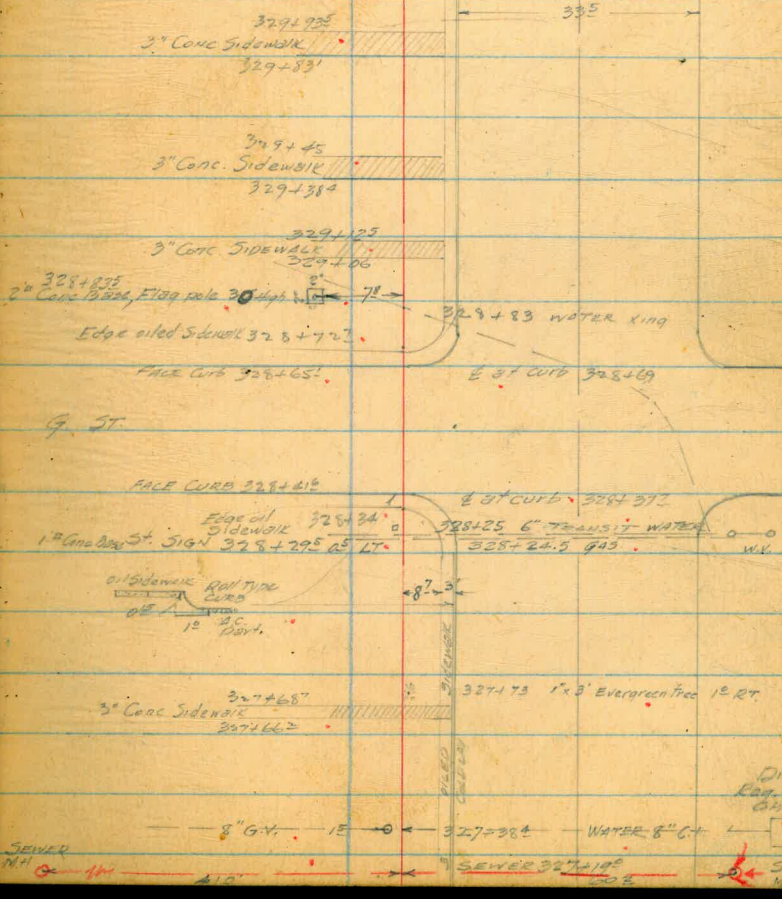 33⁵
329+93⁵
3" Conc Sidewalk
329+83¹
329+45
3" Conc. Sidewalk
329+38⁴
329+12⁵
3" Conc. SIDEWALK
329+06
328+83⁵
2" Conc Base, Flag pole 30 High
2⁰
7⁸
328+83 WATER Xing
Edge oiled Sidewalk 328+72⁷
FACE Curb 328+65¹
℄ at curb 328+69
G. ST.
FACE CURB 328+41⁶
℄ at curb 328+37²
Edge oil Sidewalk 328+34
328+25 6" TRANSIT WATER
St. SIGN 328+29⁵ 0⁵ LT
328+24.5 GAS
W.V.
oil Sidewalk
Roll Type CURB
8⁷ 3'
0⁵
1⁰
A.C. Pav't.
OILED SIDEWALK
327+73 1" x 3' Evergreen Tree 1⁰ RT.
327+68⁷
3" Conc Sidewalk
327+66²
8" G.V. 1⁵
327+38⁴ WATER 8" C.I
SEWER MH
SEWER 327+19⁰
41.0'
60⁵